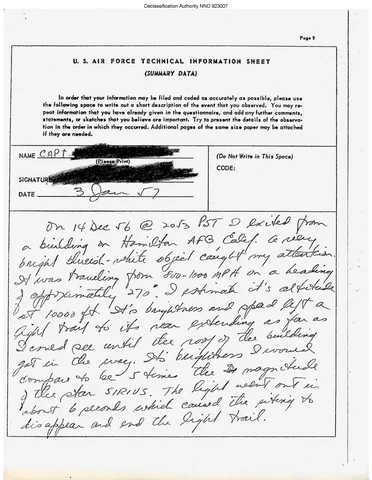 Declassification Authority NND 923007
Page 9
U. S. AIR FORCE TECHNICAL INFORMATION SHEET
(SUMMARY DATA)
In order that your information may be filed and coded as accurately as possible, please use
the following space to write out a short description of the event that you observed. You may re-
peat information that you have already given in the questionnaire, and add any further comments,
statements, or sketches that you believe are important. Try to present the details of the observa-
tion in the order in which they occurred. Additional pages of the same size paper may be attached
if they are needed.
NAME CAPT.
(Please Print)
(Do Not Write in This Space)
CODE:
SIGNATURE
DATE 3 Jan 57
On 14 Dec 56 @ 2053 PST I exited from
a building on Hamilton AFB Calif. a very
bright blueish-white object caught my attention
It was traveling from 800-1000 MPH on a heading
of approximately 270°. I estimate it's altitude
at 10000 ft. It's brightness and speed left a
light trail to its rear extending as far as
I could see until the roof of the building
got in the way. It's brightness I would
compare to be 5 times the magnitude
of the star SIRIUS. The light went out in
about 6 seconds which caused the siting to
disappear and end the light trail.